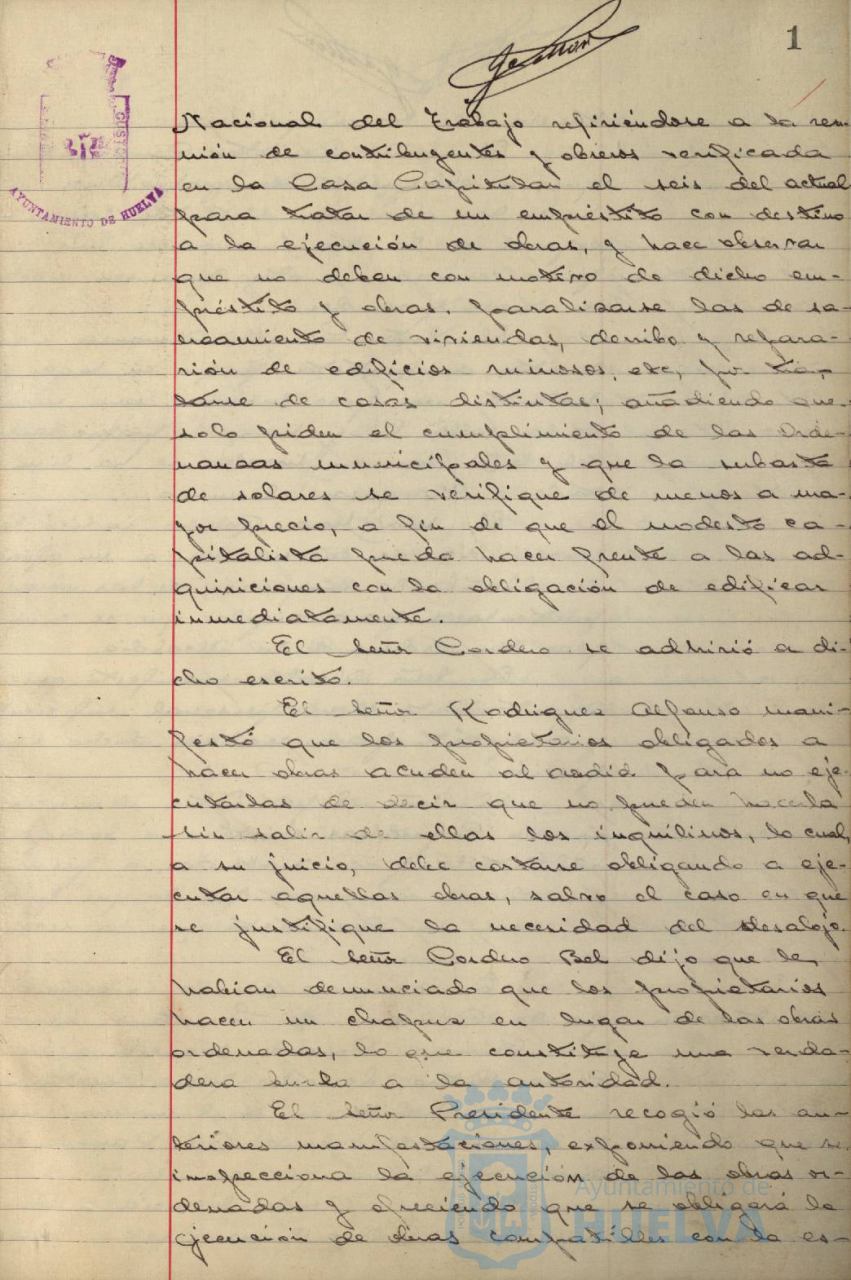 1
AYUNTAMIENTO DE HUELVA
Nacional del Trabajo refiriéndose a la reu-
nión de contribuyentes y obreros verificada
en la Casa Capitular el seis del actual
para tratar de un empréstito con destino
a la ejecución de obras, y hace observar
que no deben con motivo de dicho em-
préstito y obras, paralizarse las de sa-
neamiento de viviendas, derribo y repara-
ción de edificios ruinosos, etc, por tra-
tarse de cosas distintas; añadiendo que
solo piden el cumplimiento de las Orde-
nanzas municipales y que la subasta
de solares se verifique de menos a ma-
yor precio, a fin de que el modesto ca-
pitalista pueda hacer frente a las ad-
quiriciones con la obligación de edificar
inmediatamente.
El Señor Cordero se adhirió a di-
cho escrito.
El Señor Rodríguez Alfonso mani-
festó que los propietarios obligados a
hacer obras acuden al ardid para no eje-
cutarlas de decir que no pueden hacerla
sin salir de ellas los inquilinos, lo cual,
a su juicio, debe cortarse obligando a eje-
cutar aquellas obras, salvo el caso en que
se justifique la necesidad del desalojo.
El Señor Cordero Bel dijo que le
habían denunciado que los propietarios
hacen un chapuz en lugar de las obras
ordenadas, lo que constituye una verda-
dera burla a la autoridad.
El Señor Presidente recogió las an-
teriores manifestaciones, exponiendo que se
inspecciona la ejecución de las obras or-
denadas y ofreciendo que se obligará la
ejecución de obras compatibles con la es-
Ayuntamiento de
HUELVA